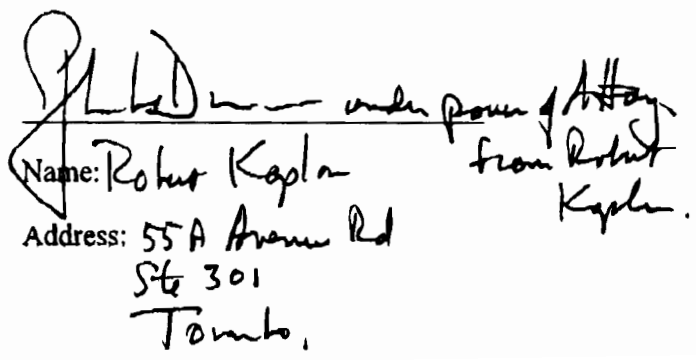 under power of Attorney
from Robert
Kaplan.
Name: Robert Kaplan
Address: 55A Avenue Rd
Ste 301
Toronto.